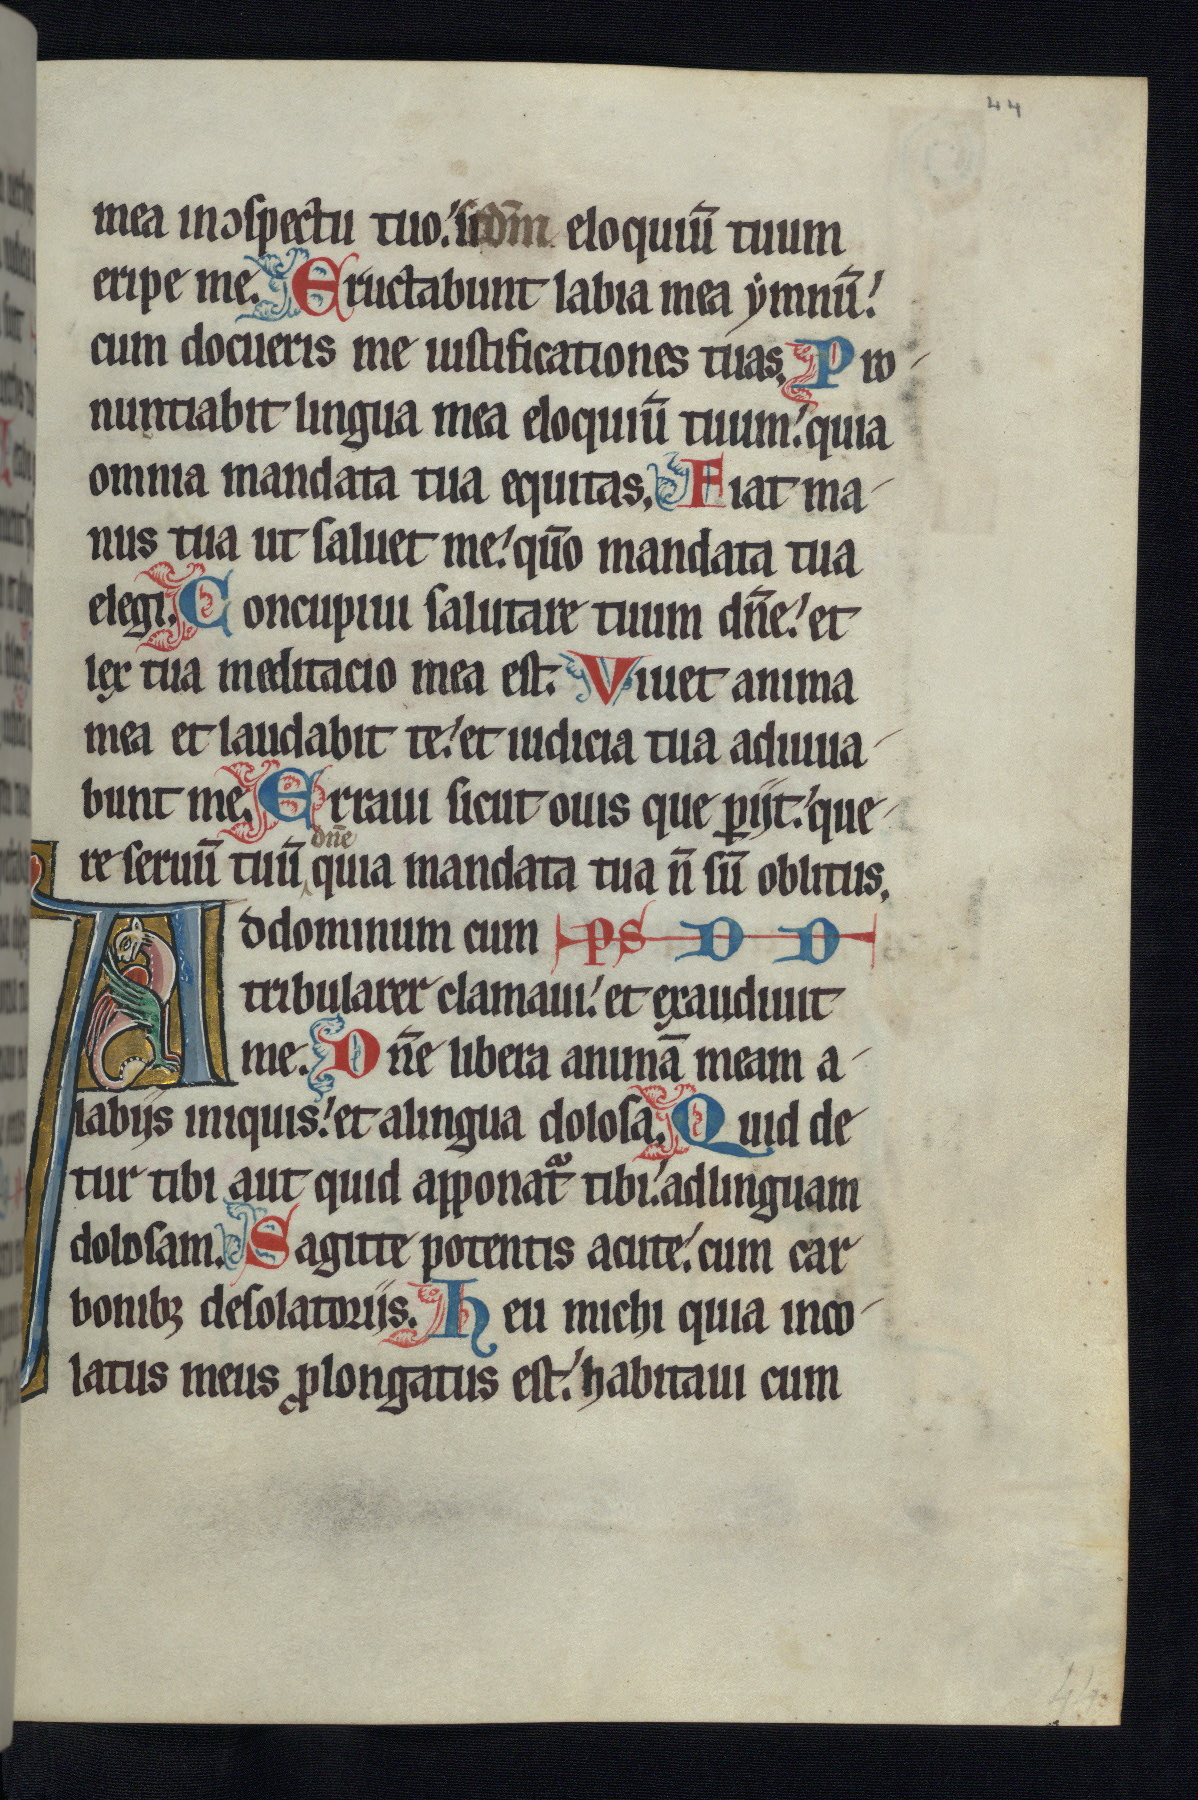 44
mea inↄspectu tuo. scdm̄ eloquiū tuum
eripe me. Eructabunt labia mea ẏmnū.
cum docueris me iustificationes tuas. Pro-
nuntiabit lingua mea eloquiū tuum. quia
omnia mandata tua equitas. Fiat ma-
nus tua ut saluet me. quō mandata tua
elegi. Concupiui salutare tuum dn̄e. et
lex tua meditacio mea est. Viuet anima
mea et laudabit te. et iudicia tua adiuua-
bunt me. Erraui sicut ouis que ꝑijt. que-
dn̄e
re seruū tuū quia mandata tua n̄ sū oblitus.
Addominum cum PS D D
tribularer clamaui. et exaudiuit
me. Dn̄e libera animā meam a-
labijs iniquis. et alingua dolosa. Quid de
tur tibi aut quid apponat᷑ tibi. adlinguam
dolosam. Sagitte potentis acute. cum car
bonibꝫ desolatorijs. Heu michi quia inco-
latus meus ꝓlongatus est. habitaui cum
44